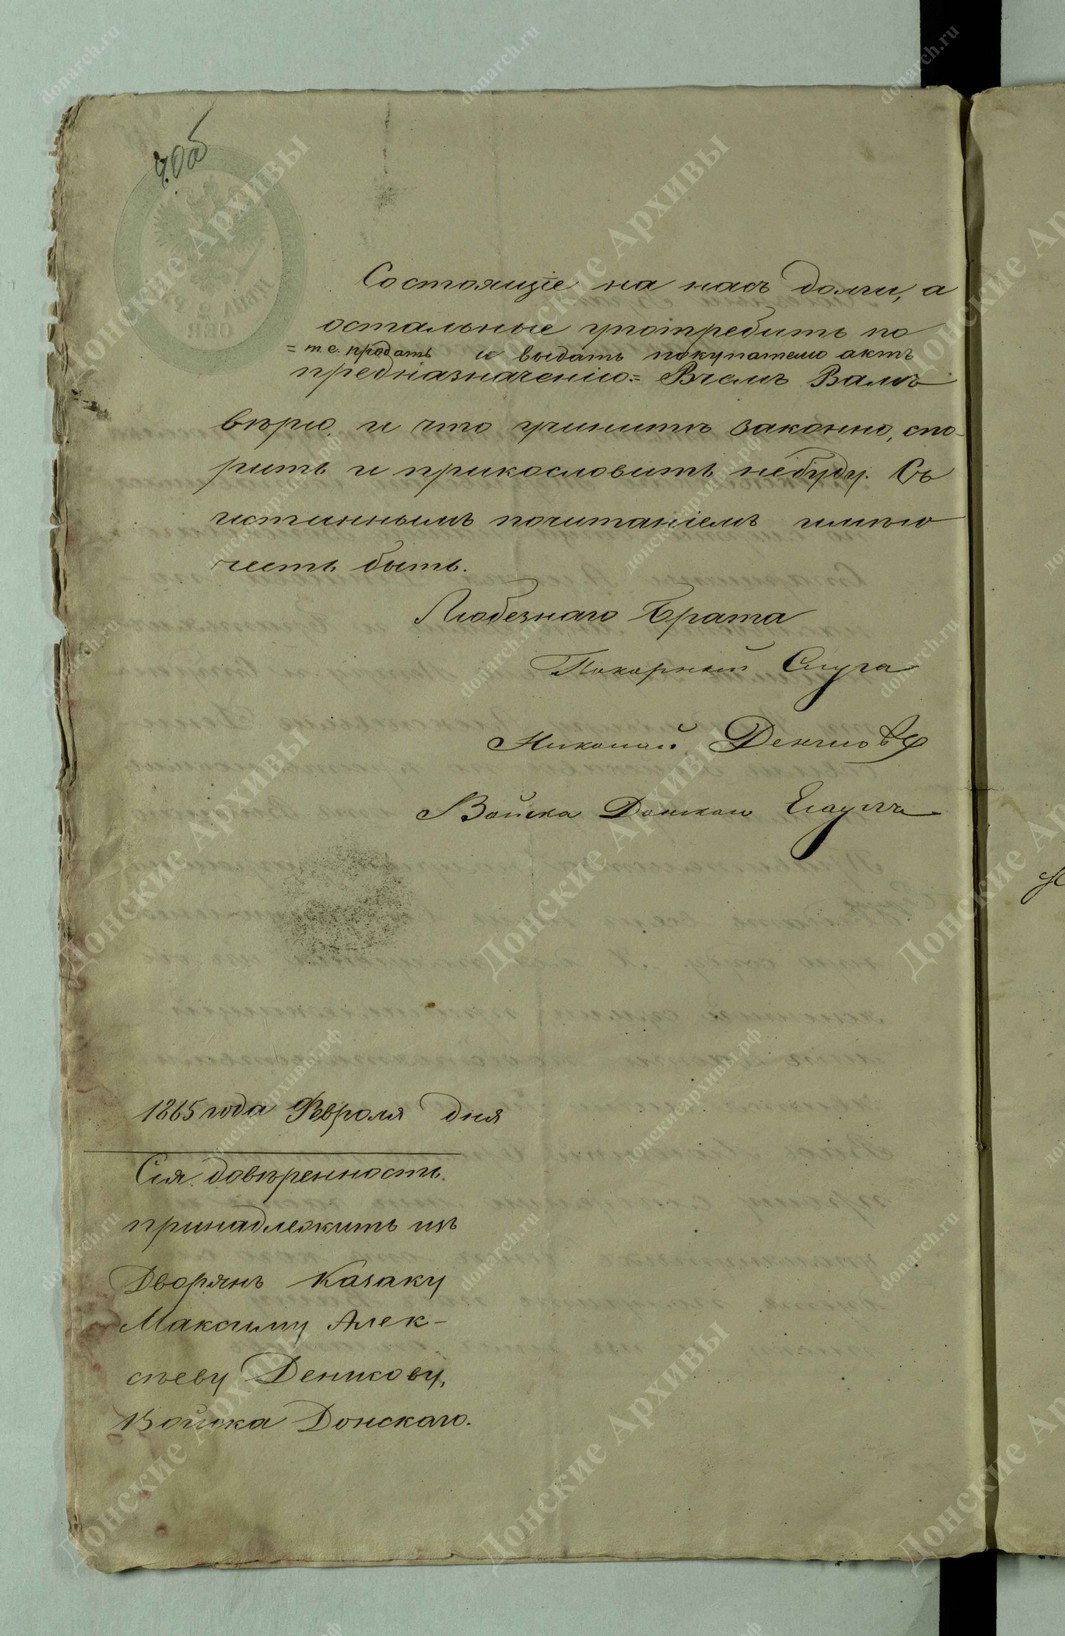 4 об
Состоящіе на насъ долги, а
остальные употребить по
= т. е. продать и выдать покупателю актъ
предназначенію = Вчемъ Вамъ
вѣрю и что учините законно, спо-
рить и прикословить небуду. Съ
истиннымъ почитаніемъ имѣю
честь быть.
Любезнаго Брата
Покорный Слуга
Николай Денисовъ
Войска Донскаго Есаулъ
1865 года Февроля дня
Сія довѣренность
принадлежитъ изъ
Дворянъ Казаку
Максиму Алек-
сѣеву Денисову,
Войска Донскаго.
Донские Архивы
donarch.ru
донскиеархивы.рф